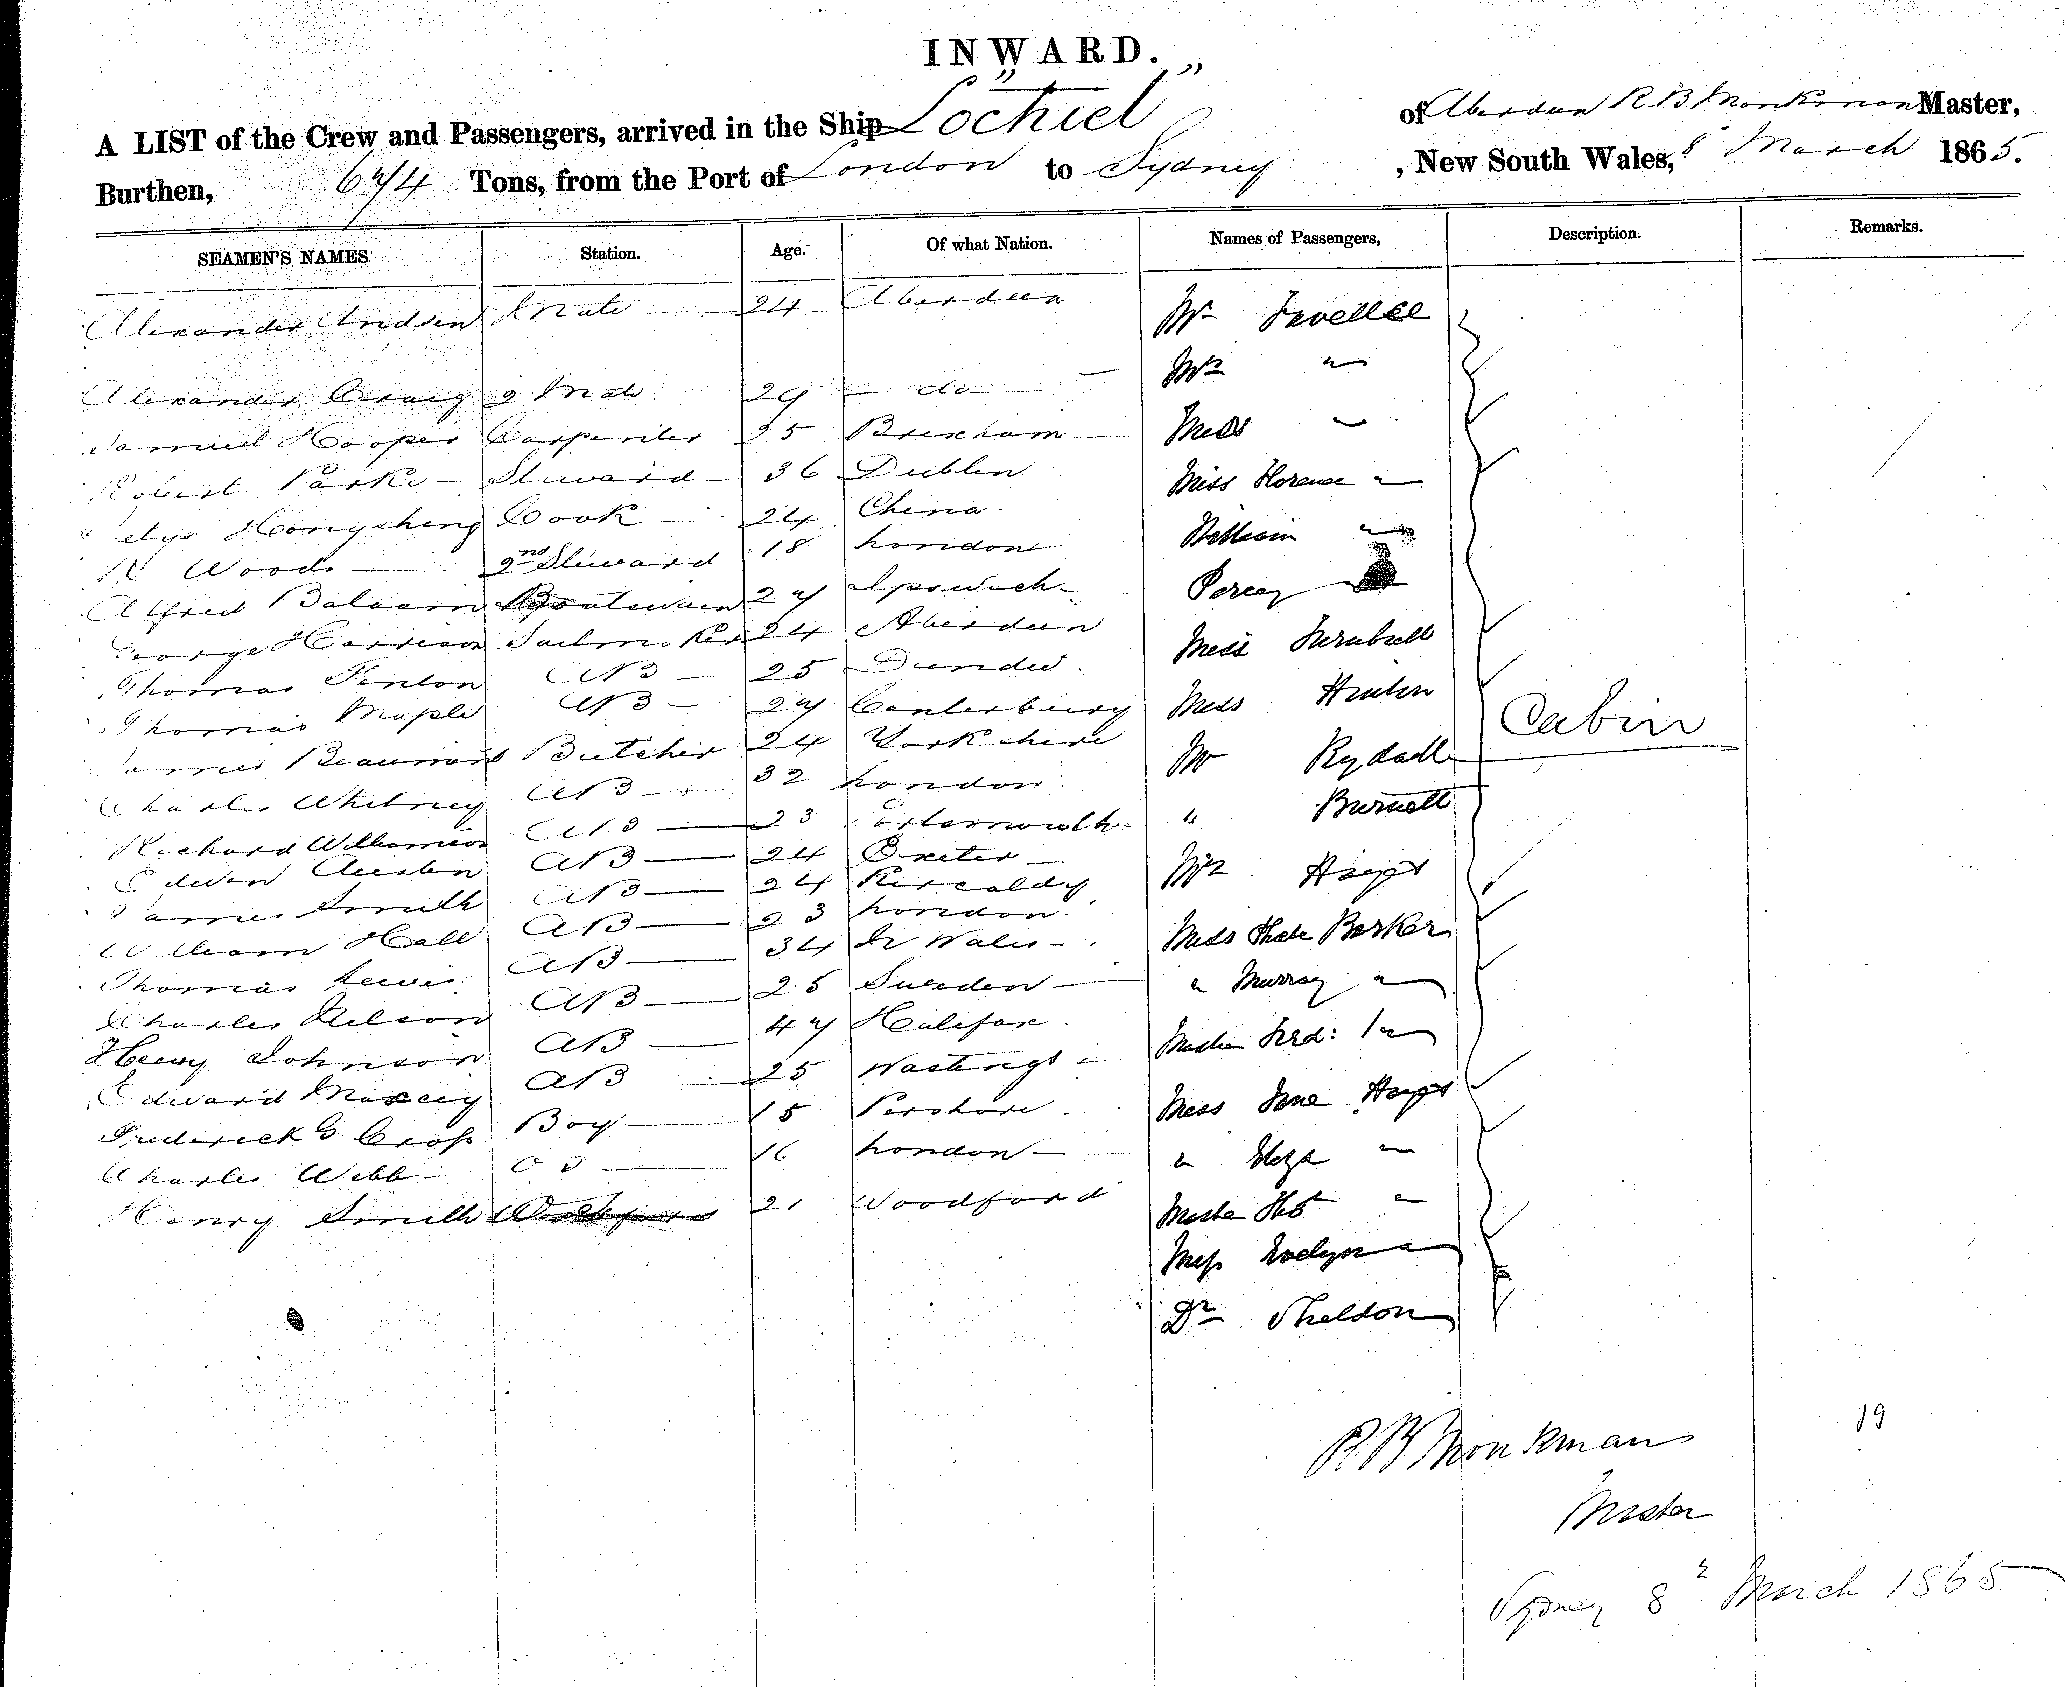 INWARD.
A LIST of the Crew and Passengers, arrived in the Ship "Lochiel" of Aberdeen R B Monkman Master,
Burthen, Tons, from the Port of London to Sydney, New South Wales, 8 March 1865.
SEAMEN'S NAMES Station. Age. Of what Nation. Names of Passengers, Description. Remarks.
Alexander Mate 24 Aberdeen Mr
Mrs "
Alexander Craig 2 Mate 29 do
Samuel Hooper Carpenter 25 Brixham Miss "
Robert Parke Steward 36 Dublin Miss Florence "
Hongsheng Cook 24 China
William "
Woods 2nd Steward 18 London
Alfred Balaam Boatswain 27 Ipswich Percy
George Harrison Sailmaker 24 Aberdeen Miss Turnbull
Thomas Fenton AB 25 Dundee
Thomas Maple AB 27 Canterbury Miss
James Beaumont Butcher 24 Yorkshire Mr
Charles Whitney AB 32 London
Richard Williamson AB 23 " Burnell
Edwin Austen AB 24 Exeter
James Smith AB 24 Kircaldy Mrs Hayes
William Hall AB 23 London
Thomas Lewis AB 34 Wales Miss Barker
Charles Nelson AB 25 Sweden " Murray "
Henry Johnson AB 47 Halifax
Edward Maxey AB 25 Hastings Master Fred: "
Frederick G Cross Boy 15 Pershore Miss Jane Hayes
Charles Webb 16 London " Eliza "
Henry Smith 21 Woodford Master "
Miss Evelyn "
Dr Sheldon
Cabin
19
R B Monkman
Master
Sydney 8 March 1865